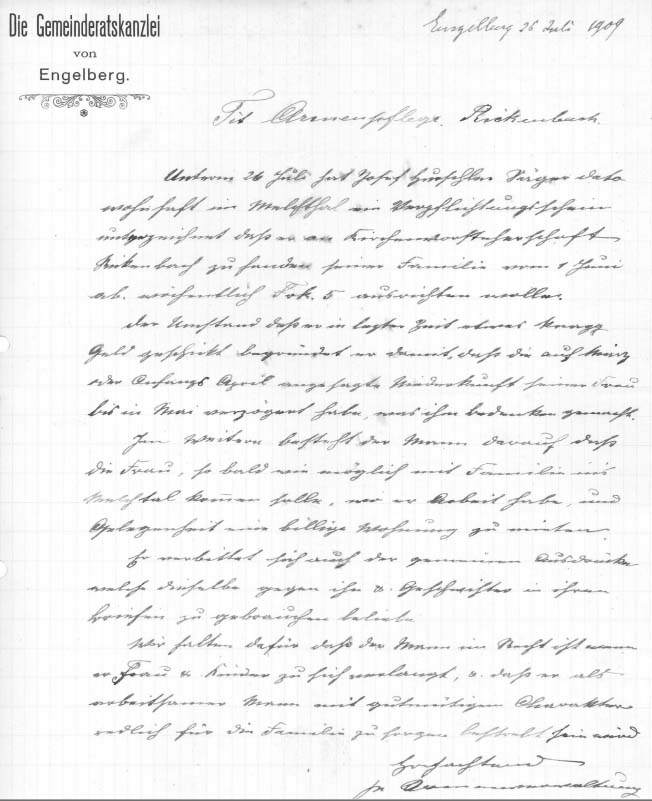 Die Gemeinderatskanzlei
von
Engelberg.
Engelberg 26 Juli 1909
Tit Armenpflege. Rickenbach.
Unterm 24 Juli hat Josef Hurschler Säger dato
wohnhaft in Melchthal ein Verpflichtungsschein
unterzeichnet daß er an Kirchenvorsteherschaft
Rickenbach zu handen seiner Familie vom 1 Juni
ab. wöchentlich Frk. 5 ausrichten wolle.
Der Umstand daß er in letzter Zeit etwas knapp
Geld geschickt begründet er damit, daß die auf März
oder Anfangs April angesagte Niederkunft seiner Frau
bis in Mai verzögert habe, was ihm bedenken gemacht.
Im Weitern besteht der Mann darauf, daß
die Frau, so bald wie möglich mit Familie ins
Melchtal kommen solle, wo er Arbeit habe, und
Gelegenheit eine billige Wohnung zu mieten.
Er verbittet sich auch der gemeinen Ausdrücke
welche dieselbe gegen ihn & Geschwister in ihren
Briefen zu gebrauchen beliebe.
Wir halten dafür daß der Mann im Recht ist wenn
er Frau & Kinder zu sich verlangt, & daß er als
arbeitsamer Mann mit gutmütigem Charakter
redlich für die Familie zu sorgen bestrebt sein wird
Hochachtend
Armenverwaltung